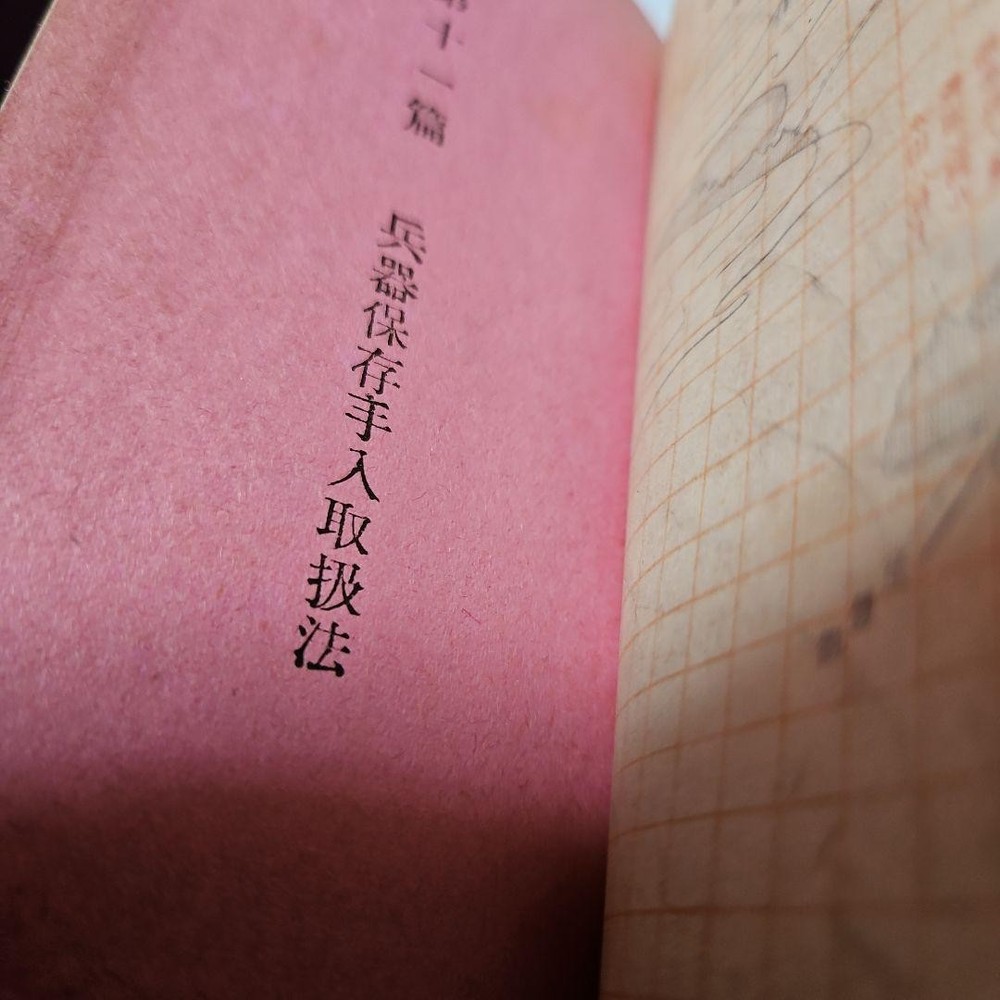 第十一篇 兵器保存手入取扱法